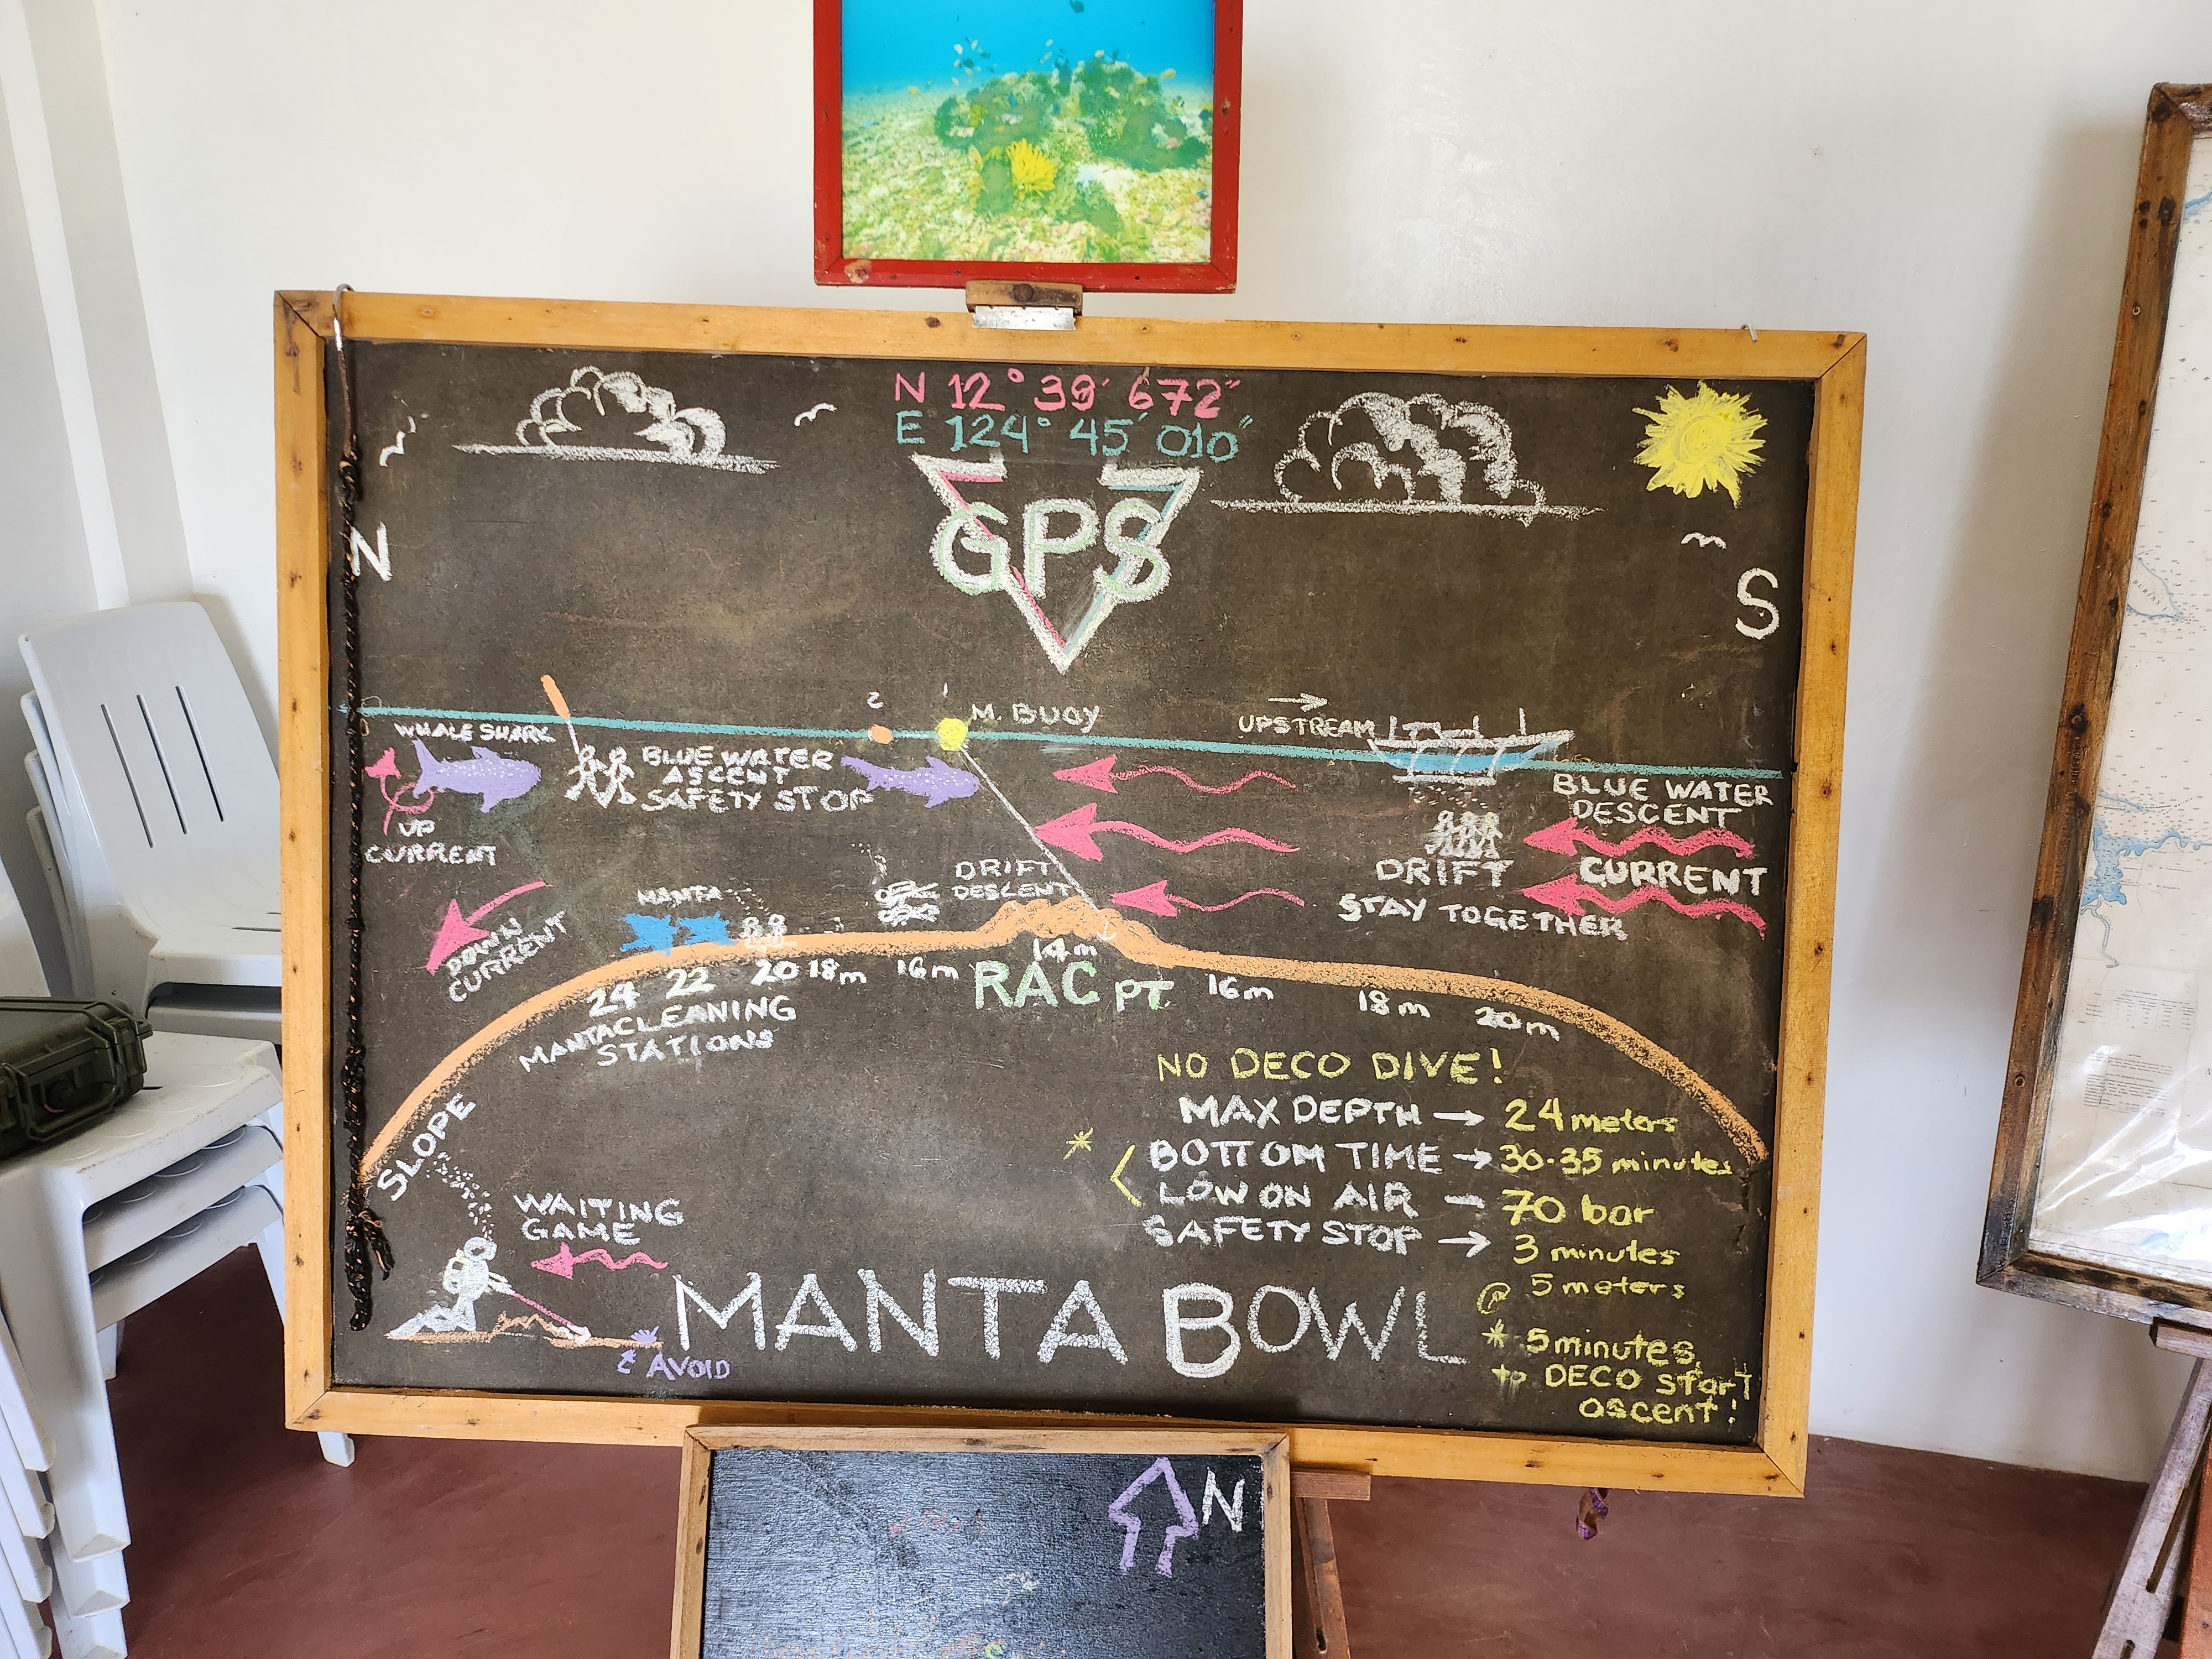 N 12° 39′ 672″
E 124° 45′ 010″
GPS
N
S
WHALE SHARK
BLUE WATER
ASCENT
SAFETY STOP
2
1
M. BUOY
UPSTREAM
BLUE WATER
DESCENT
UP
CURRENT
DRIFT
DESCENT
DRIFT
STAY TOGETHER
CURRENT
DOWN
CURRENT
MANTA
24 22 20 18m 16m 14m 16m 18m 20m
RAC PT.
MANTA CLEANING
STATIONS
SLOPE
NO DECO DIVE!
MAX DEPTH → 24 meters
* < BOTTOM TIME → 30-35 minutes
LOW ON AIR — 70 bar
SAFETY STOP → 3 minutes
@ 5 meters
* 5 minutes
to DECO start
ascent!
WAITING
GAME
AVOID
MANTA BOWL
N
BURIAS I